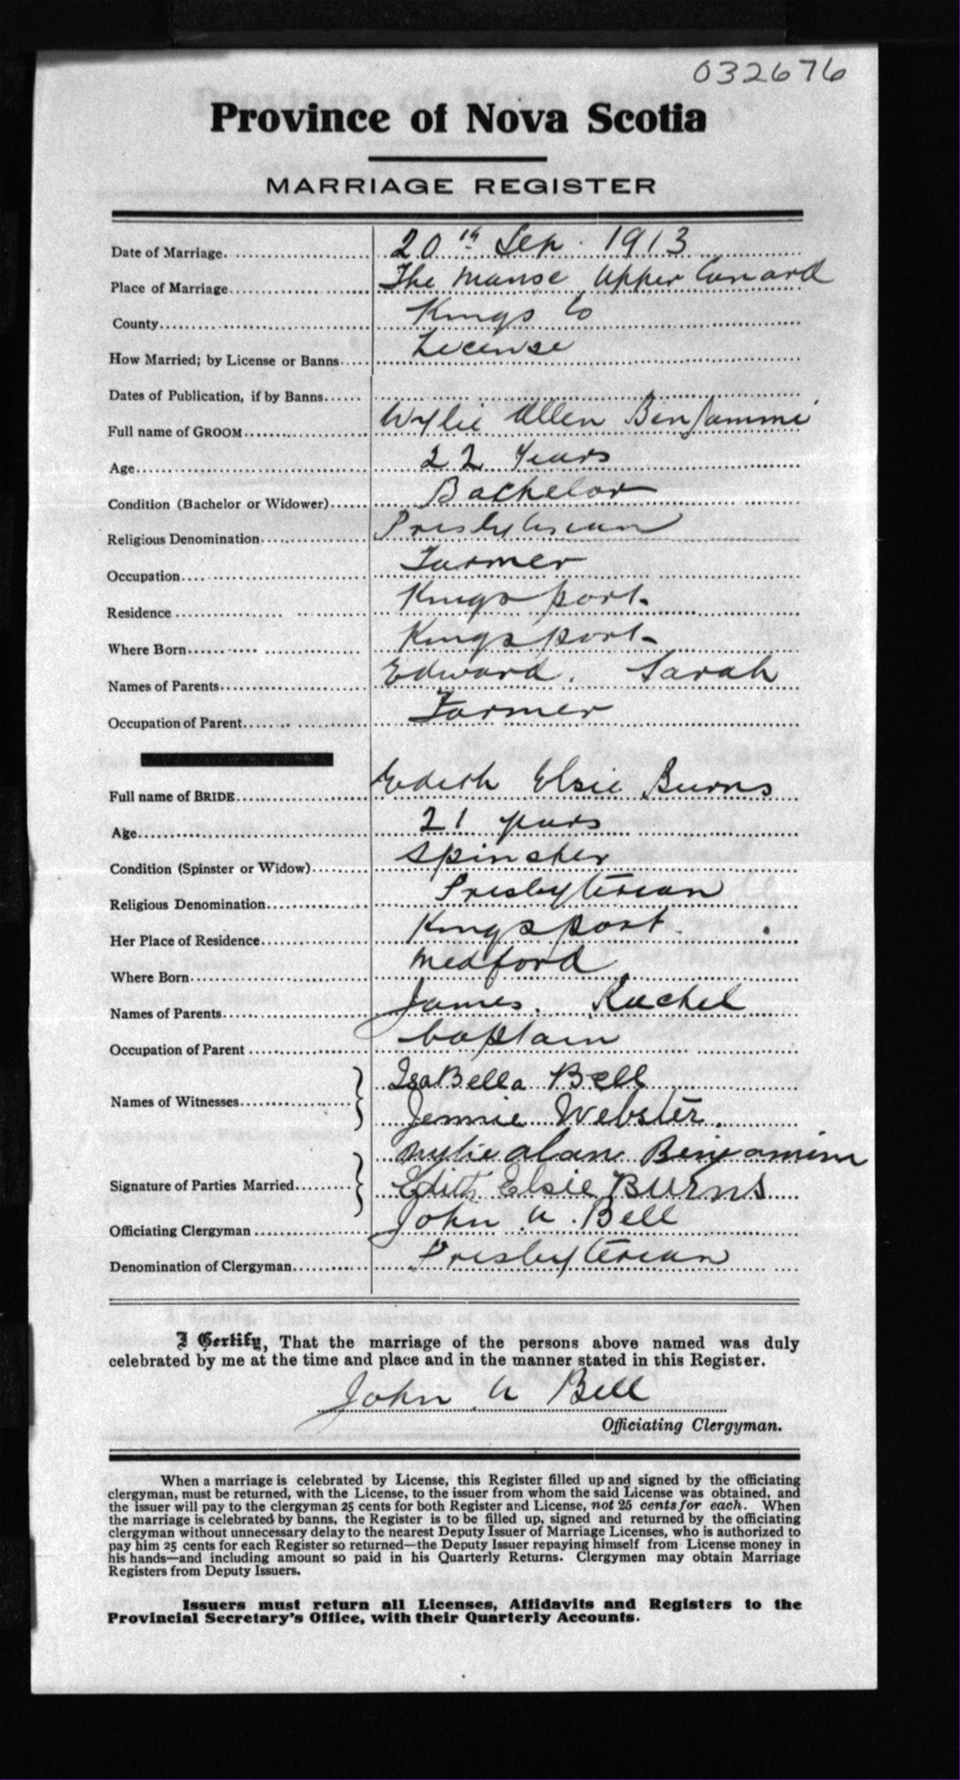 032676
Province of Nova Scotia
MARRIAGE REGISTER
Date of Marriage. 20th Sep. 1913
Place of Marriage The Manse Upper Canard
County Kings Co
How Married; by License or Banns License
Dates of Publication, if by Banns
Full name of GROOM Wylie Allen Benjammi
Age 22 Years
Condition (Bachelor or Widower) Bachelor
Religious Denomination Presbyterian
Occupation Farmer
Residence Kingsport
Where Born Kingsport
Names of Parents Edward. Sarah
Occupation of Parent Farmer
Full name of BRIDE Edith Elsie Burns
Age 21 years
Condition (Spinster or Widow) Spinster
Religious Denomination Presbyterian
Her Place of Residence Kingsport
Where Born Medford
Names of Parents James. Rachel
Occupation of Parent Captain
Names of Witnesses IsaBella Bell
Jennie Webster.
Wylie alan Benjamin
Signature of Parties Married Edith Elsie Burns
Officiating Clergyman John A. Bell
Denomination of Clergyman Presbyterian
I Certify, That the marriage of the persons above named was duly
celebrated by me at the time and place and in the manner stated in this Register.
John A Bell
Officiating Clergyman.
When a marriage is celebrated by License, this Register filled up and signed by the officiating
clergyman, must be returned, with the License, to the issuer from whom the said License was obtained, and
the issuer will pay to the clergyman 25 cents for both Register and License, not 25 cents for each. When
the marriage is celebrated by banns, the Register is to be filled up, signed and returned by the officiating
clergyman without unnecessary delay to the nearest Deputy Issuer of Marriage Licenses, who is authorized to
pay him 25 cents for each Register so returned—the Deputy Issuer repaying himself from License money in
his hands—and including amount so paid in his Quarterly Returns. Clergymen may obtain Marriage
Registers from Deputy Issuers.
Issuers must return all Licenses, Affidavits and Registers to the
Provincial Secretary's Office, with their Quarterly Accounts.